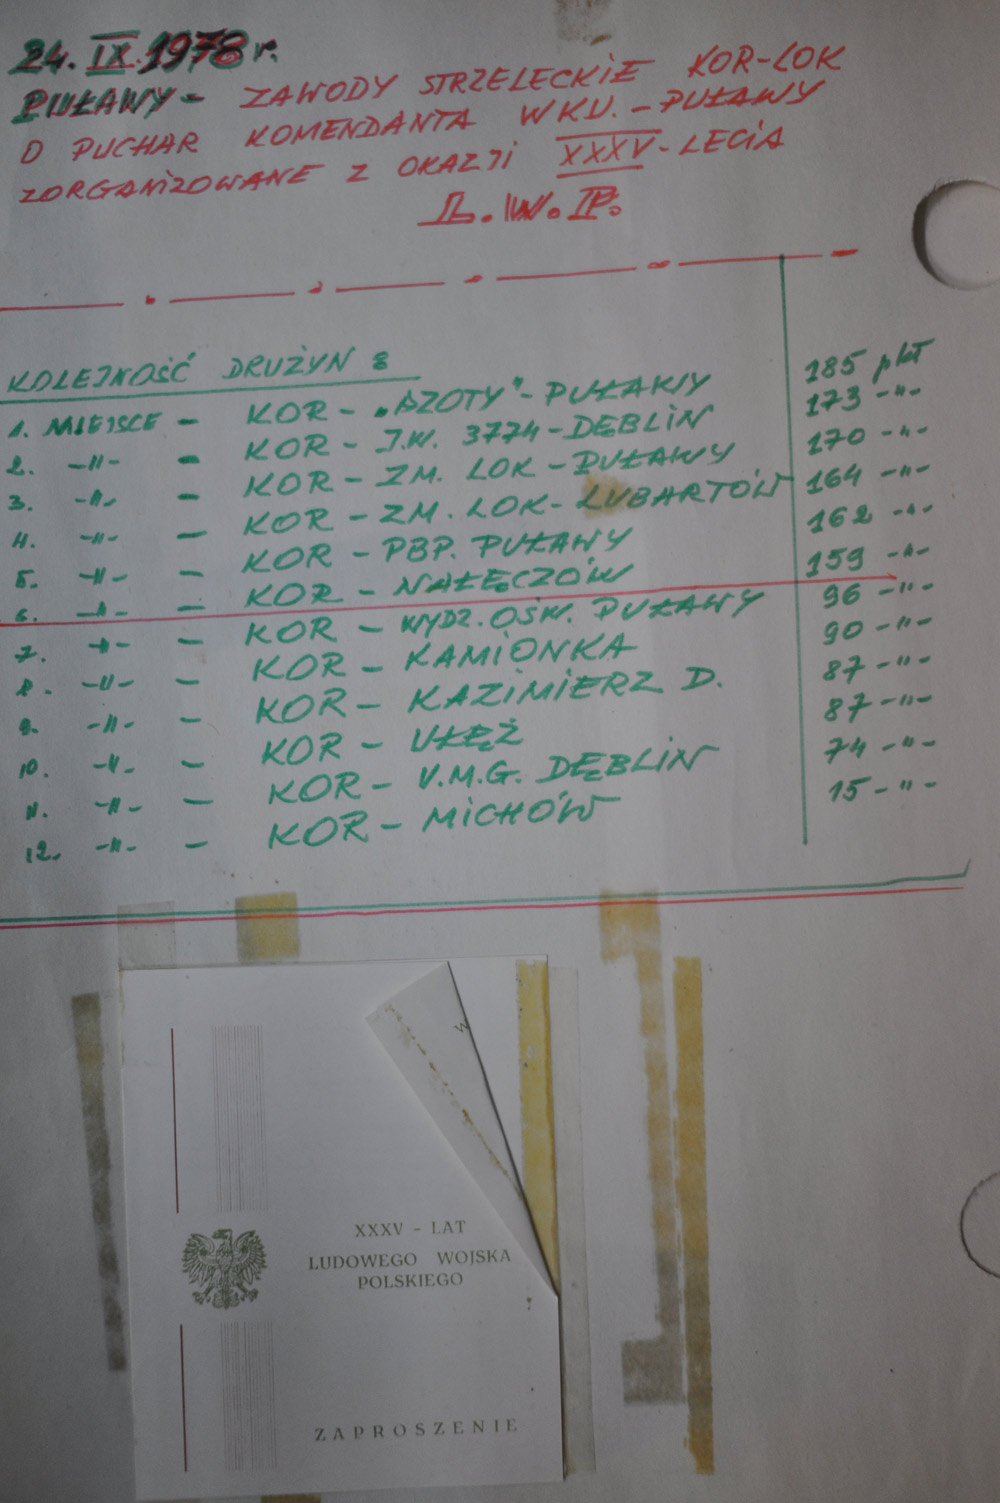 24. IX. 1978 r.
PUŁAWY - ZAWODY STRZELECKIE KOR-LOK
O PUCHAR KOMENDANTA WKU. - PUŁAWY
ZORGANIZOWANE Z OKAZJI XXXV-LECIA
L.W.P.
KOLEJNOŚĆ DRUŻYN :
1. MIEJSCE - KOR - „AZOTY" - PUŁAWY 185 pkt
2. -"- - KOR - J.W. 3774 - DĘBLIN 173 -"-
3. -"- - KOR - ZM. LOK - PUŁAWY 170 -"-
4. -"- - KOR - ZM. LOK - LUBARTÓW 164 -"-
5. -"- - KOR - PBP. PUŁAWY 162 -"-
6. -"- - KOR - NAŁĘCZÓW 159 -"-
7. -"- - KOR - WYDZ. OŚW. PUŁAWY 96 -"-
8. -"- - KOR - KAMIONKA 90 -"-
9. -"- - KOR - KAZIMIERZ D. 87 -"-
10. -"- - KOR - UŁĘŻ 87 -"-
11. -"- - KOR - U.M.G. DĘBLIN 74 -"-
12. -"- - KOR - MICHÓW 15 -"-
XXXV - LAT
LUDOWEGO WOJSKA
POLSKIEGO
ZAPROSZENIE